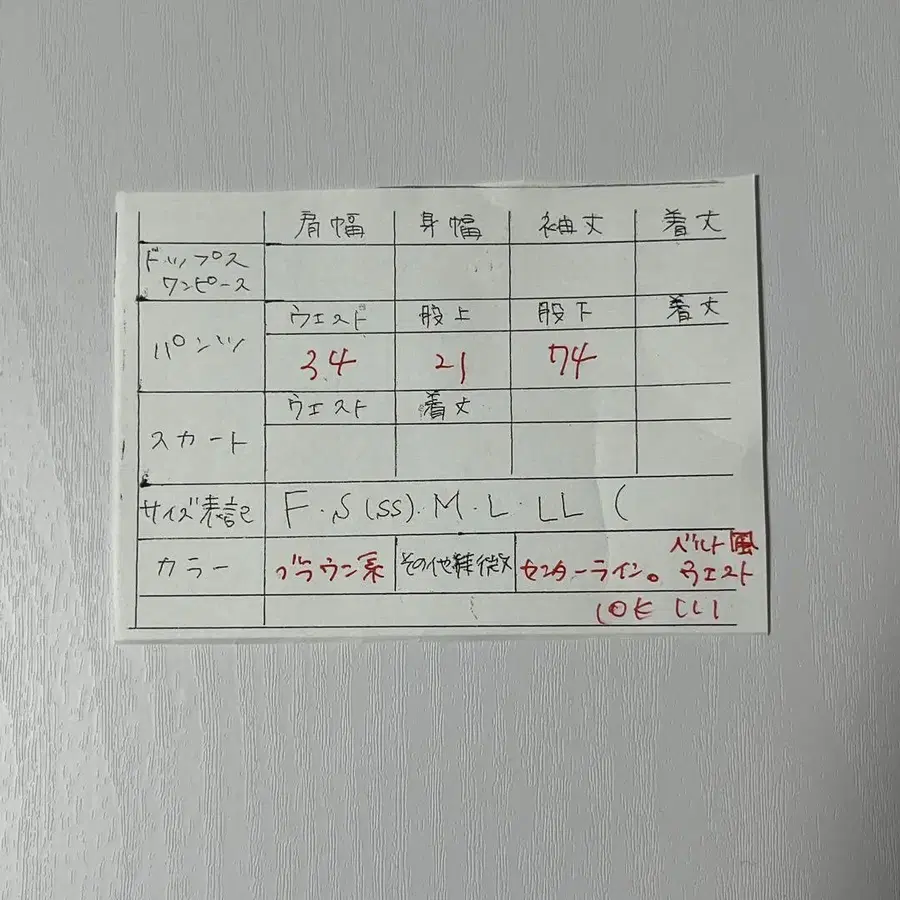 肩幅 身幅 袖丈 着丈
トップス
ワンピース
ウエスト 股上 股下 着丈
パンツ 34 21 74
ウエスト 着丈
スカート
サイズ表記 F・S(SS)・M・L・LL (
カラー ブラウン系 その他特徴 センターライン。 ベルト風
ウエスト